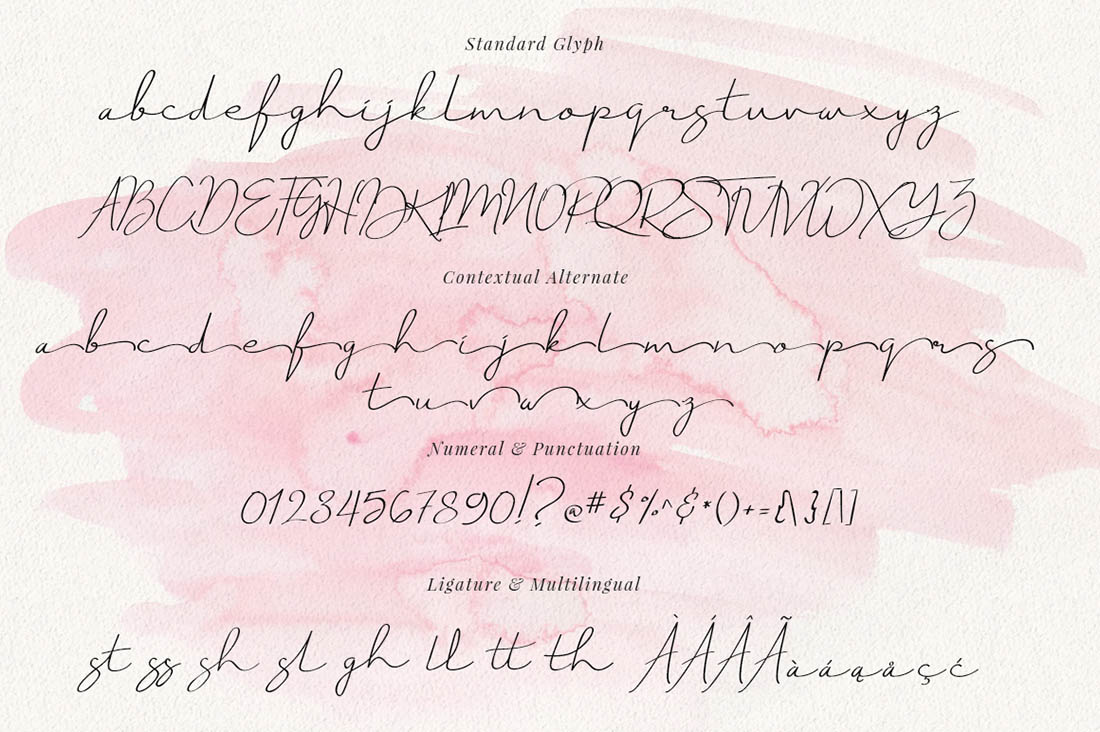 Standard Glyph
abcdefghijklmnopqrstuvwxyz
ABCDEFGHIJKLMNOPQRSTUVWXYZ
Contextual Alternate
abcdefghijklmnopqrs
tuvwxyz
Numeral & Punctuation
01234567890!?@#$%^&*()+={\}[|]
Ligature & Multilingual
st ss sh sl gh ll tt th ÀÁÂÃàáąåçć